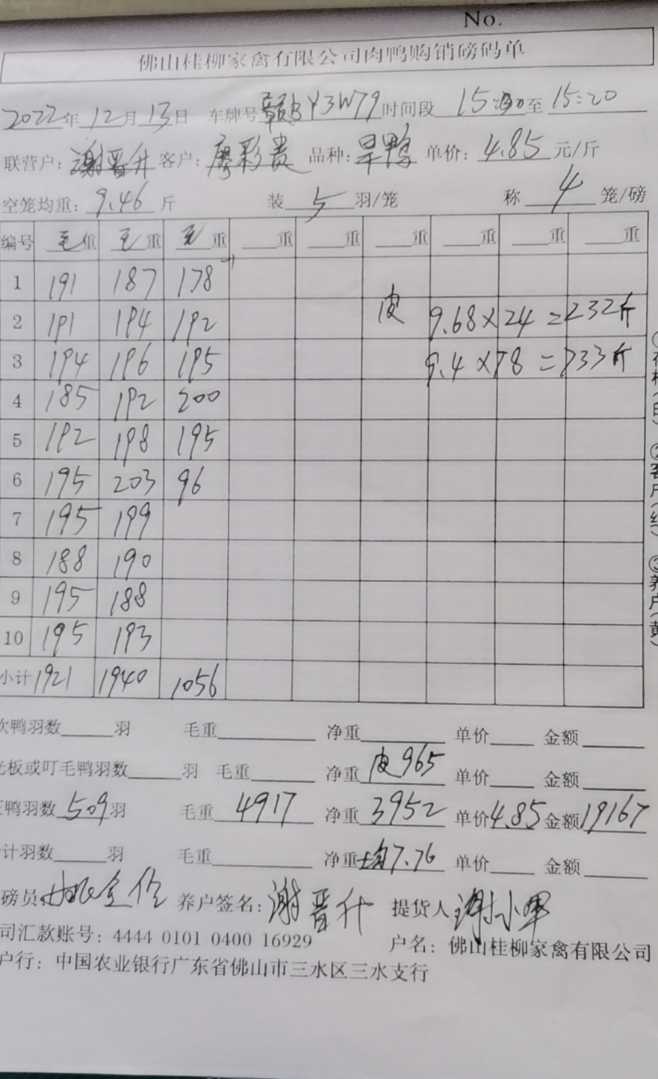 No.
佛山桂柳家禽有限公司肉鸭购销磅码单
2022年12月13日 车牌号 Y3W79 时间段 15: 至 15:20
联营户: 谢晋升 客户: 廖彩贵 品种: 旱鸭 单价: 4.85 元/斤
空笼均重: 9.46 斤 装 5 羽/笼 称 4 笼/磅
编号 毛重 毛重 毛重 重 重 重 重 重 重
1 191 187 178
2 191 194 192 皮 9.68×24=232斤
3 194 196 195 9.4×78=733斤
4 185 192 200
5 192 198 195
6 195 203 96
7 195 199
8 188 190
9 195 188
10 195 193
小计 1921 1940 1056
鸭羽数 羽 毛重 净重 单价 金额
板或叮毛鸭羽数 羽 毛重 净重 皮965 单价 金额
鸭羽数 509 羽 毛重 4917 净重 3952 单价 4.85 金额 19167
计羽数 羽 毛重 净重 均7.76 单价 金额
磅员: 养户签名: 谢晋升 提货人: 谢小军
司汇款账号: 4444 0101 0400 16929 户名: 佛山桂柳家禽有限公司
户行: 中国农业银行广东省佛山市三水区三水支行